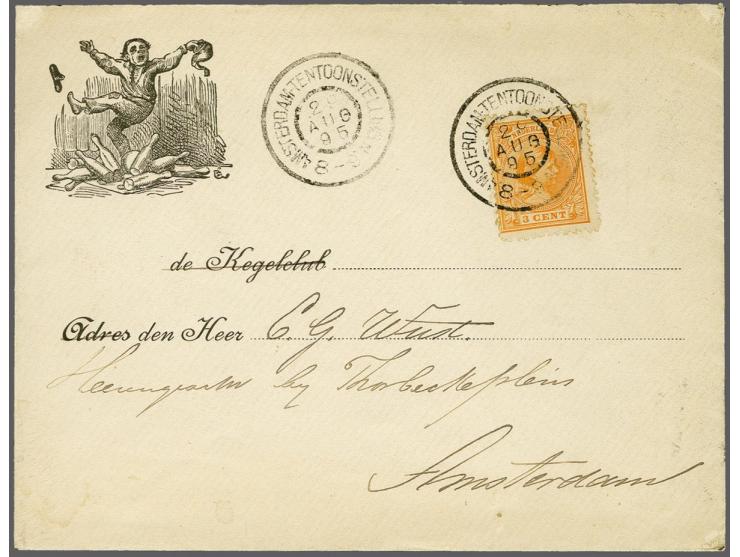 AMSTERDAM-TENTOONSTELLING
29
AUG
95
8-9
AMSTERDAM-TENTOONSTE
29
AUG
95
8-9
3 CENT
de Kegelclub
Adres den Heer C. G. Wüst.
Heerengracht by Thorbeckeplein
Amsterdam